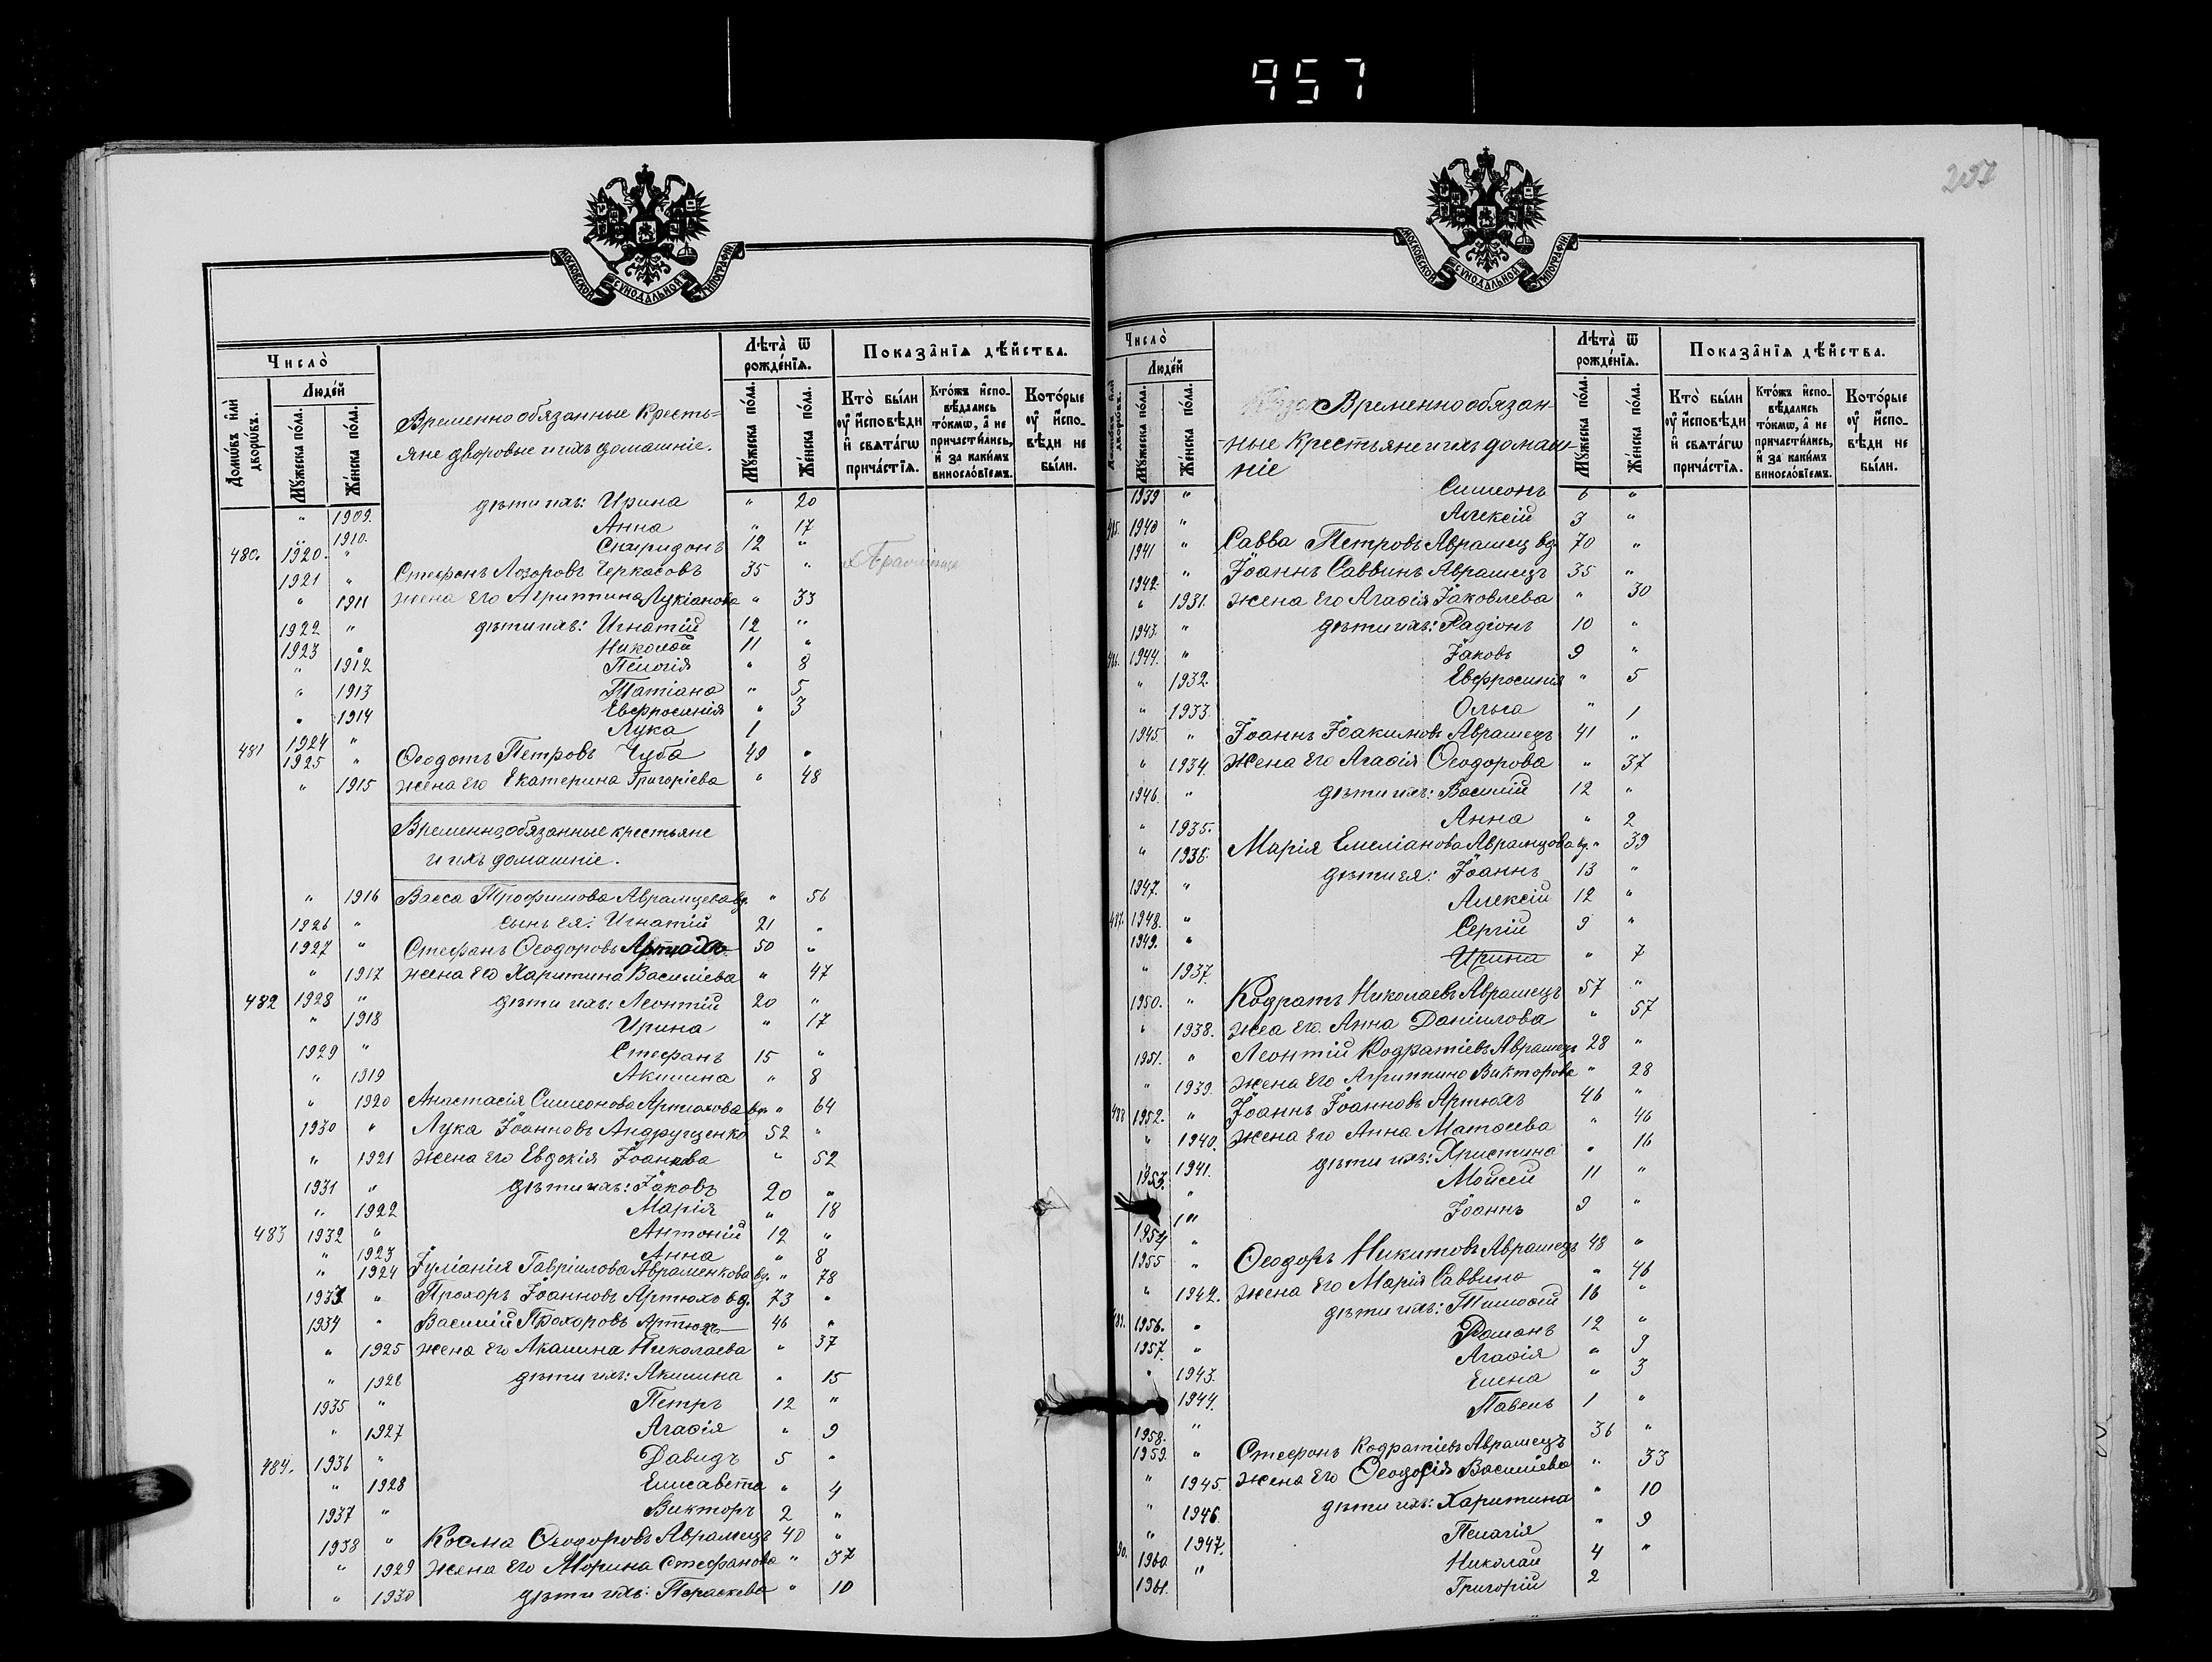 957
МОСКОВСКОЙ СѴНОДАЛЬНОЙ ТИПОГРАФІИ
Число̀
Домѡ́въ и҆лѝ дворѡ́въ.
Люде́й
Мꙋ́жеска по́ла.
Же́нска по́ла.
Временно обязанные кресть=
яне дворовые и ихъ домашніе.
Лѣта̀ ѿ рожде́нїѧ.
Мꙋ́жеска по́ла.
Же́нска по́ла.
Показа̑нїѧ дѣ́йства.
Кто̀ бы́ли оу҆ и҆сповѣ́ди и҆ свѧта́гѡ прича́стїѧ.
Кто́жъ и҆спо-вѣ́дались то́кмѡ, а҆ не причасти́лись, и҆ за каки́мъ винослѡ́вїемъ.
Кото́рые оу҆ и҆спо-вѣ́ди не бы́ли.
" 1909. дѣти ихъ: Ирина " 20
" 1910. Анна " 17
480. 1920. " Спиридонъ 12 "
1921 " Стефанъ Лазоровъ Черкасовъ 35 "
" 1911 жена его Агриппина Лукіанова " 33
1922 " дѣти ихъ: Игнатій 12 "
1923 " Николай 11 "
" 1912 Пелагія " 8
" 1913 Татіана " 5
" 1914 Евфросинія " 3
1924 " Лука 1
481 1925 " Ѳеодотъ Петровъ Чуба 49 "
" 1915 жена его Екатерина Григоріева " 48
Временнообязанные крестьяне
и ихъ домашніе.
" 1916 Васса Трофимова Аврамцева вд. " 56
1926 " сынъ ея: Игнатій 21 "
1927 " Стефанъ Ѳеодоровъ 50 "
" 1917 жена его Харитина Василіева " 47
482 1928 " дѣти ихъ: Леонтій 20 "
" 1918 Ирина " 17
1929 " Стефанъ 15 "
" 1919 Акилина " 8
" 1920 Анастасія Симеонова Артюхова вд. " 64
1930 " Лука Іоанновъ Андрущенко 52 "
" 1921 жена его Евдокія Іоаннова " 52
1931 " дѣти ихъ: Іаковъ 20 "
" 1922 Марія " 18
483 1932 " Антоній 12 "
" 1923 Анна " 8
" 1924 Іуліанія Гавріилова Авраменкова вд. " 78
1933 " Прохоръ Іоанновъ Артюхо вд. 73 "
1934 " Василій Прохоровъ Артюхъ 46 "
" 1925 жена его Акилина Николаева " 37
" 1926 дѣти ихъ: Акилина " 15
1935 " Петръ 12 "
" 1927 Агафія " 9
484. 1936 " Давидъ 5 "
" 1928 Елисавета " 4
1937 " Викторъ 2 "
1938 " Косма Ѳеодоровъ Аврамецъ 40 "
" 1929 жена его Марина Стефанова " 37
" 1930 дѣти ихъ: Параскева " 10
257
МОСКОВСКОЙ СѴНОДАЛЬНОЙ ТИПОГРАФІИ
Число̀
Люде́й
Мꙋ́жеска по́ла.
Же́нска по́ла.
Временно обязан-
ные крестьяне и ихъ домаш-
ніе
Лѣта̀ ѿ рожде́нїѧ.
Мꙋ́жеска по́ла.
Же́нска по́ла.
Показа̑нїѧ дѣ́йства.
Кто̀ бы́ли оу҆ и҆сповѣ́ди и҆ свѧта́гѡ прича́стїѧ.
Кто́жъ и҆спо-вѣ́дались то́кмѡ, а҆ не причасти́лись, и҆ за каки́мъ винослѡ́вїемъ.
Кото́рые оу҆ и҆спо-вѣ́ди не бы́ли.
1939 " Симеонъ 6 "
1940 " Алексій 3 "
1941 " Савва Петровъ Аврамец вд. 70 "
1942. " Іоаннъ Саввинъ Аврамецъ 35 "
" 1931. жена его Агафія Іаковлева " 30
1943. " дѣти ихъ: Радіонъ 10 "
1944. " Іаковъ 9 "
" 1932. Евфросинія " 5
" 1933. Ольга " 1
1945. " Іоаннъ Іоакимовъ Аврамецъ 41 "
" 1934. Жена его Агафія Ѳеодорова " 37
1946. " дѣти ихъ: Василій 12 "
" 1935. Анна " 2
" 1936. Марія Емеліанова Аврамцова вд. " 39
1947. " дѣти ея: Іоаннъ 13 "
1948. " Алексій 12 "
1949. " Сергій 9 "
" 1937. Ирина " 7
1950. " Кодратъ Николаевъ Аврамецъ 57 "
" 1938. жеа его. Анна Даніилова " 57
1951. " Леонтій Кодратіевъ Аврамецъ 28 "
" 1939. жена его Агриппина Викторова " 28
488 1952. " Іоаннъ Іоанновъ Артюхъ 46 "
" 1940. жена его Анна Матѳеева " 46
" 1941. дѣти ихъ: Христина " 16
1953. " Мойсей 11 "
1954 " Іоаннъ 9 "
1955 " Ѳеодоръ Никитовъ Аврамецъ 48 "
" 1942. жена его Марія Саввина " 46
1956. " дѣти ихъ: Тимоѳей 16 "
1957. " Романъ 12 "
" 1943. Агафія " 9
" 1944. Елена " 3
1958. " Павелъ 1 "
1959. " Стефанъ Кодратіевъ Аврамецъ 36 "
" 1945. жена его Ѳеодосія Василіева " 33
" 1946. дѣти ихъ: Харитина " 10
" 1947. Пелагія " 9
1960 " Николай 4 "
1961. Григорій 2